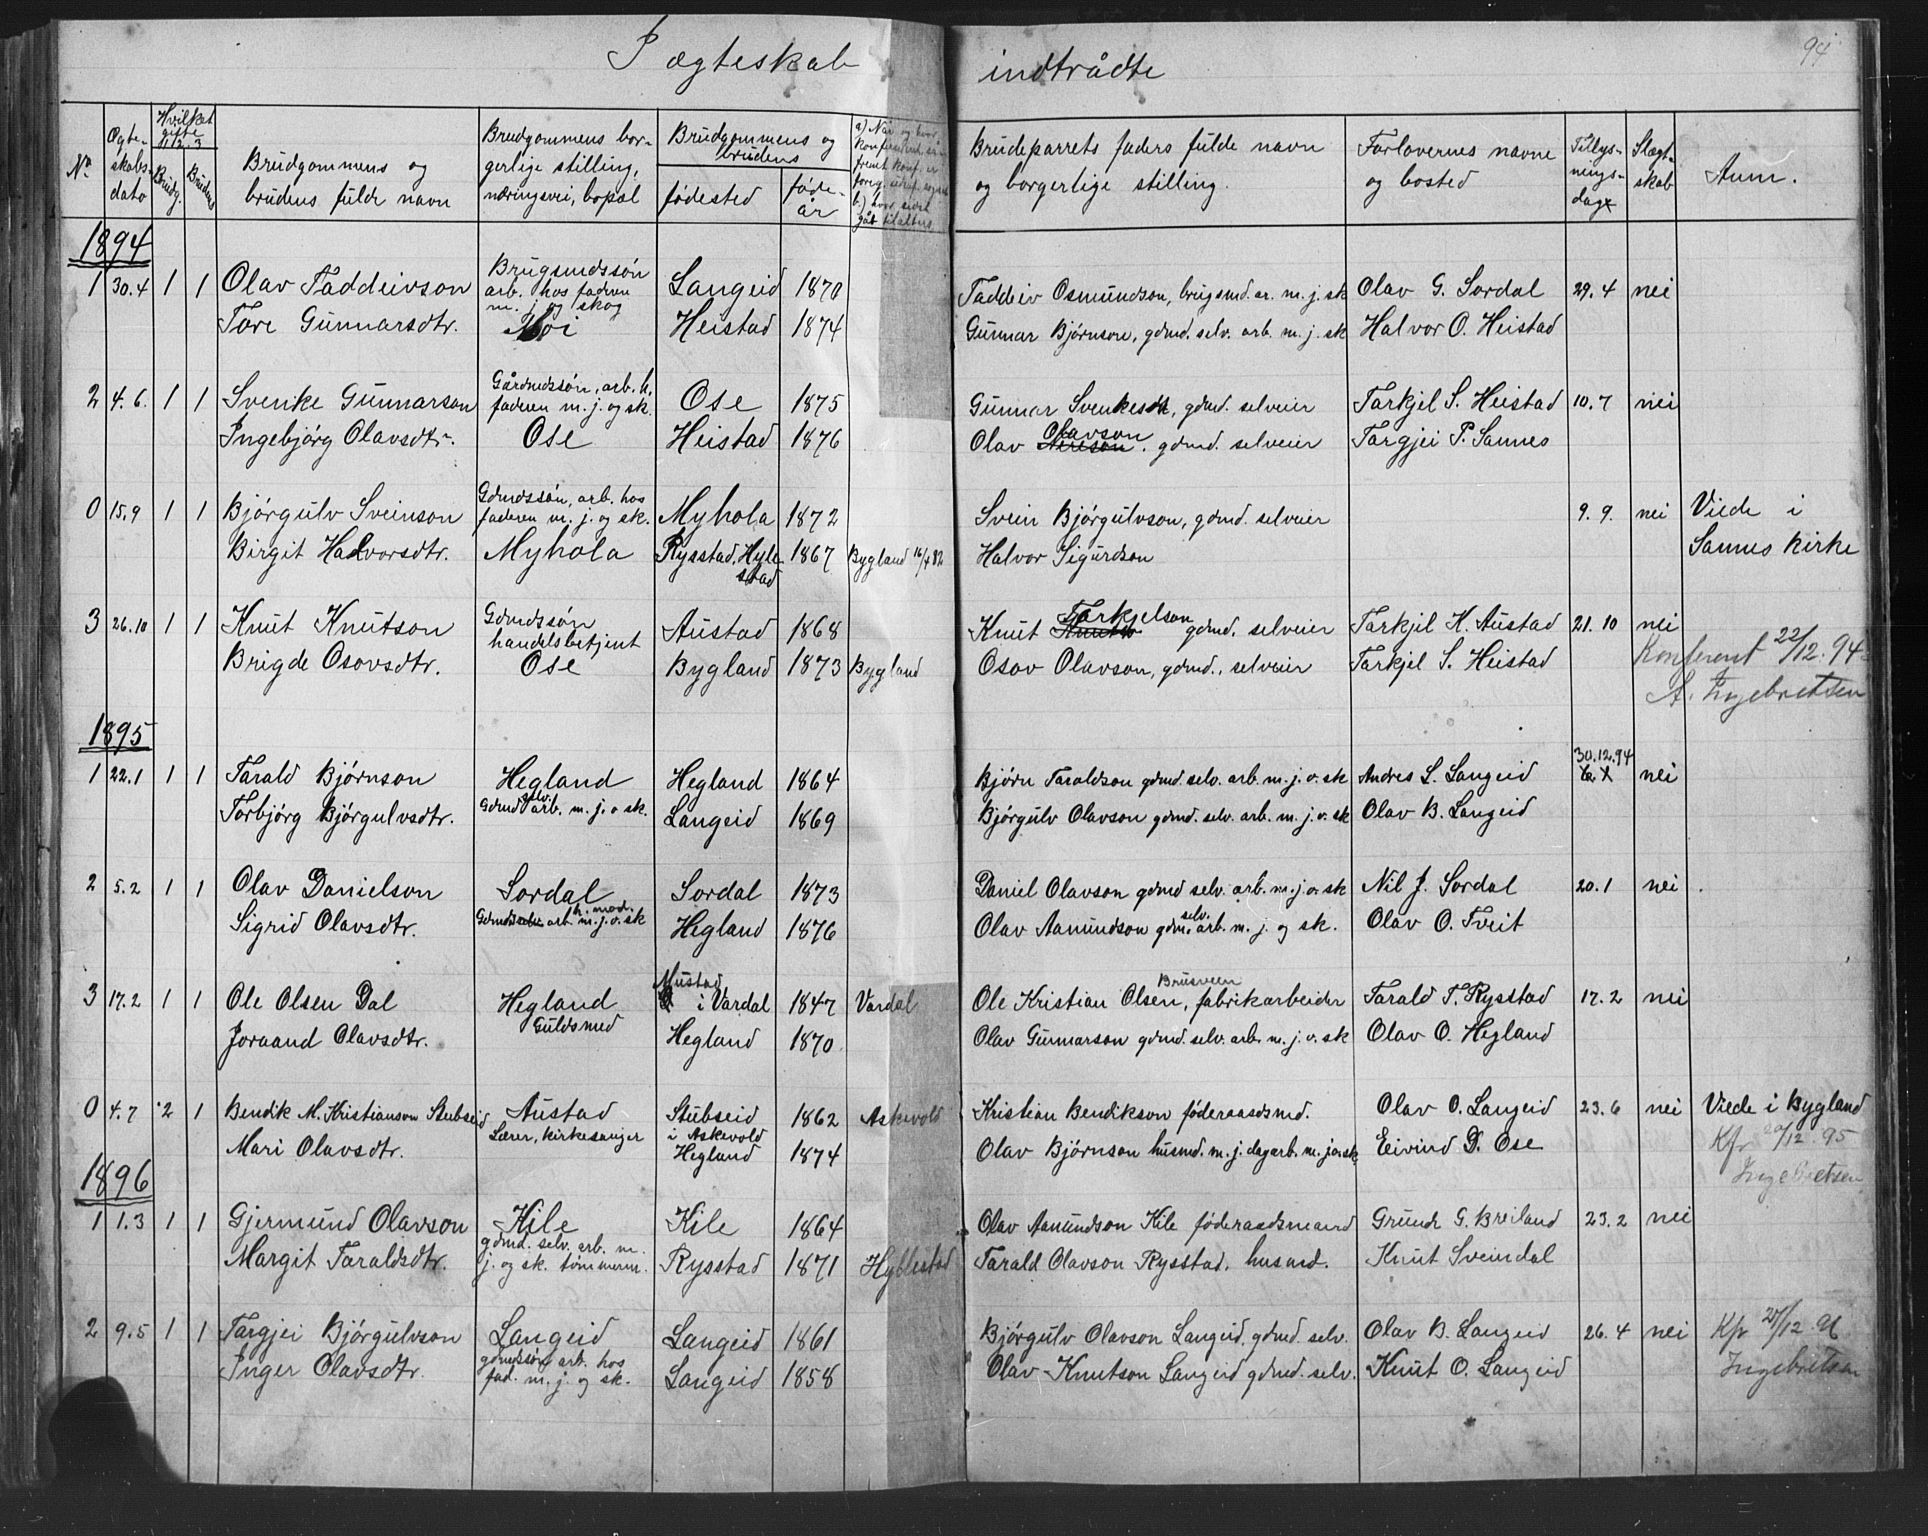 I ægteskab indtrådte
94
No
Ogte-skabs-dato
Hvilket gifte 1. 2. 3
Brudg.
Bruden
Brudgommens og brudens fulde navn
Brudgommens bor-gerlige stilling, næringsvei, bopæl
Brudgommens og brudens
fødested
føde-år
Brudeparrets faders fulde navn og borgerlige stilling.
Forlovernes navne og bosted
Tillys-nings-dage
Slægt-skab
Anm.
1894
1 30.4 1 1 Olav Taddeivson Brugsmdssøn Langeid 1870 Taddeiv Osmundson, brugsmd. ar. m. j. sk Olav G. Sordal 29.4 nei
arb. hos faderen
m. j. og skog
Tore Gunnarsdtr. Moi Heistad 1874 Gunnar Bjørnson, gdmd. selv. arb. m. j. sk Halvor O. Heistad
2 4.6. 1 1 Svenke Gunnarson Gårdmdssøn, arb. h. Ose 1875 Gunnar Svenkeson, gdmd. selveier Tarkjel S. Heistad 10.7 nei
faderen m. j. og sk.
Ingebjørg Olavsdtr. Ose Heistad 1876 Olav Olavson gdmd. selveier Targjei P. Sannes
0 15.9 1 1 Bjørgulv Sveinson Gdmdssøn, arb. hos Myhola 1872 Svein Bjørgulvson, gdmd. selveier 9.9. nei Viede i
faderen m. j. og sk.
Birgit Halvorsdtr. Myhola Rysstad, Hyle-stad 1867 Bygland 16/4 82 Halvor Sigurdson Sannes kirke
3 26.10 1 1 Knut Knutson Gdmdssøn Austad 1868 Knut Tarkjelson gdmd. selveier Tarkjil K. Austad 21.10 nei
handelsbetjent
Brigde Osovsdtr. Ose Bygland 1873 Bygland Osov Olavson, gdmd., selveier Tarkjel S. Heistad
Konferert 22/12. 94
A. Ingebretsen
1895
1 22.1 1 1 Tarald Bjørnson Hegland Hegland 1864 Bjørn Taraldson gdmd selv. arb. m. j. o. sk Andres L. Langeid 30.12.94 nei
Torbjørg Bjørgulvsdtr. Gdmd selv. arb. m. j. o sk. Langeid 1869 Bjørgulv Olavson gdmd. selv. arb. m. j. o. sk Olav B. Langeid
2 5.2 1 1 Olav Danielson Sordal Sordal 1873 Daniel Olavson gdmd selv. arb. m. j. o. sk Nil J. Sordal 20.1 nei
Sigrid Olavsdtr. arb. h. mod. m. j. o. sk Hegland 1876 Olav Aanundson gdmd. selv. arb. m. j. og sk. Olav O. Tveit
3 17.2 1 1 Ole Olsen Dal Hegland Mustad i Vardal 1847 Vardal Ole Kristian Olsen Brusveen, fabrikarbeider Tarald T. Rysstad 17.2 nei
Joraand Olavsdtr. Guldsmed Hegland 1870 Olav Gunnarson gdmd. selv. arb. m. j. o. sk Olav O. Hegland
0 4.7 2 1 Bendik M. Kristianson Stubseid Austad Stubseid i Askevold 1862 Askevold Kristian Bendikson føderaadsmd. Olav O. Langeid 23.6 nei Viede i Bygland
Lærer, kirkesanger
Mari Olavsdtr. Hegland 1874 Olav Bjørnson husmd. m. j. dagarb. m. j o. sk Eivind D. Ose
Kfr 20/12. 95
Ingebretsen
1896
1 1.3 1 1 Gjermund Olavson Kile Kile 1864 Olav Aanundson Kile føderaadsmand Grunde G. Breiland 23.2 nei
gdmd. selv. arb. m.
Margit Taraldsdtr. j. og sk. tømmerm. Rysstad 1871 Hyllestad Tarald Olavson Rysstad, husmd. Knut Sveindal
2 9.5 1 1 Targjei Bjørgulvson Langeid Langeid 1861 Bjørgulv Olavson Langeid, gdmd. selv. Olav B. Langeid 26.4 nei Kfr 21/12. 96
gdmdssøn arb. hos
Inger Olavsdtr. fad. m. j. og sk. Langeid 1858 Olav Knutson Langeid gdmd. selv. Knut O. Langeid Ingebretsen